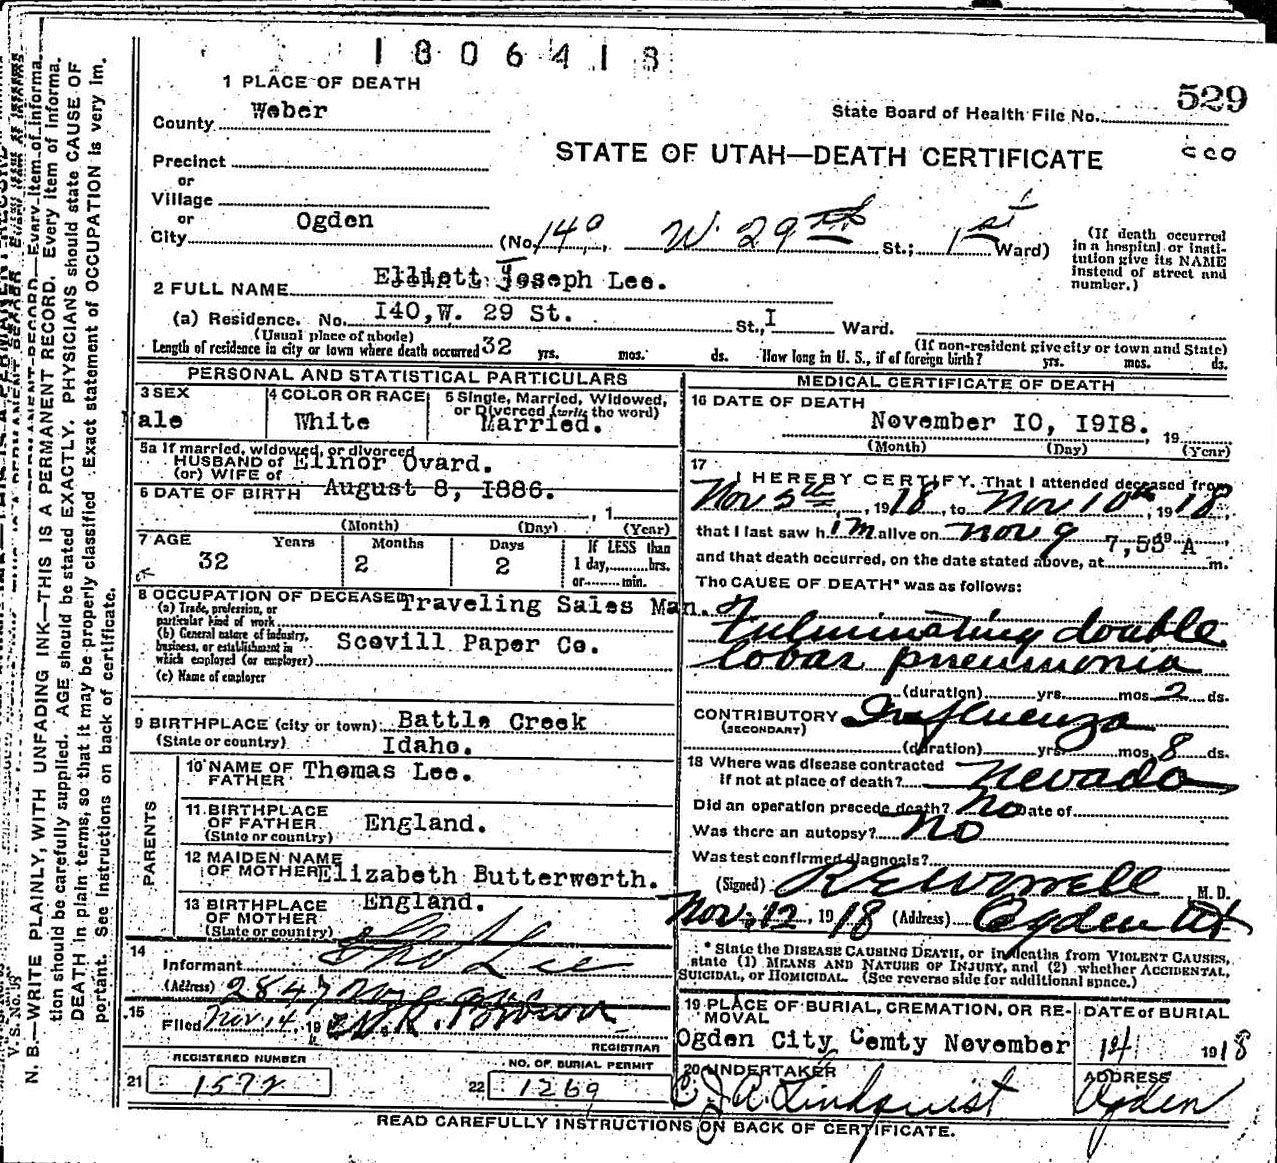 1806413
529
1 PLACE OF DEATH
State Board of Health File No.
County Weber
STATE OF UTAH—DEATH CERTIFICATE
Precinct
or
Village
or
City Ogden (No. 140, W. 29th St.; 1st Ward)
(If death occurred in a hospital or institution give its NAME instead of street and number.)
2 FULL NAME Elliott Joseph Lee.
(a) Residence. No. I40, W. 29 St. St., I Ward.
(Usual place of abode) (If non-resident give city or town and State)
Length of residence in city or town where death occurred 32 yrs. mos. ds. How long in U. S., if of foreign birth? yrs. mos. ds.
PERSONAL AND STATISTICAL PARTICULARS
3 SEX
Male
4 COLOR OR RACE
White
5 Single, Married, Widowed, or Divorced (write the word)
Married.
5a If married, widowed, or divorced
HUSBAND of
(or) WIFE of
Elinor Ovard.
6 DATE OF BIRTH August 8, I886.
, 1
(Month) (Day) (Year)
7 AGE Years Months Days If LESS than
32 2 2 1 day, hrs.
or min.
8 OCCUPATION OF DECEASED Traveling Sales Man.
(a) Trade, profession, or
particular kind of work
(b) General nature of industry,
business, or establishment in
which employed (or employer)
Scovill Paper Co.
(c) Name of employer
9 BIRTHPLACE (city or town) Battle Creek
(State or country) Idaho.
PARENTS
10 NAME OF FATHER Thomas Lee.
11 BIRTHPLACE OF FATHER England.
(State or country)
12 MAIDEN NAME OF MOTHER Elizabeth Butterworth.
13 BIRTHPLACE OF MOTHER England.
(State or country)
14
Informant Tho Lee
(Address) 2847
15
Filed Nov 14, 19 Brown
REGISTRAR
REGISTERED NUMBER
21 1572
NO. OF BURIAL PERMIT
22 1269
MEDICAL CERTIFICATE OF DEATH
16 DATE OF DEATH
November I0, I9I8. 19
(Month) (Day) (Year)
17
I HEREBY CERTIFY. That I attended deceased from
Nov 5th, 1918, to Nov 10th, 1918,
that I last saw him alive on Nov 9
and that death occurred, on the date stated above, at 7,55 A m.
The CAUSE OF DEATH* was as follows:
Fulminating double
lobar pneumonia
(duration) yrs. mos. 2 ds.
CONTRIBUTORY Influenza
(SECONDARY)
(duration) yrs. mos. 8 ds.
18 Where was disease contracted
if not at place of death? Nevada
Did an operation precede death? No Date of
Was there an autopsy? No
Was test confirmed diagnosis?
(Signed) M. D.
Nov. 12, 1918 (Address) Ogden Ut
* State the DISEASE CAUSING DEATH, or in deaths from VIOLENT CAUSES,
state (1) MEANS AND NATURE OF INJURY, and (2) whether ACCIDENTAL,
SUICIDAL, or HOMICIDAL. (See reverse side for additional space.)
19 PLACE OF BURIAL, CREMATION, OR REMOVAL
Ogden City Cemty
DATE of BURIAL
November 14 1918
20 UNDERTAKER
Lindquist
ADDRESS
Ogden
READ CAREFULLY INSTRUCTIONS ON BACK OF CERTIFICATE.
N. B.—WRITE PLAINLY, WITH UNFADING INK—THIS IS A PERMANENT RECORD. Every item of information should be carefully supplied. AGE should be stated EXACTLY. PHYSICIANS should state CAUSE OF DEATH in plain terms, so that it may be properly classified. Exact statement of OCCUPATION is very important. See instructions on back of certificate.